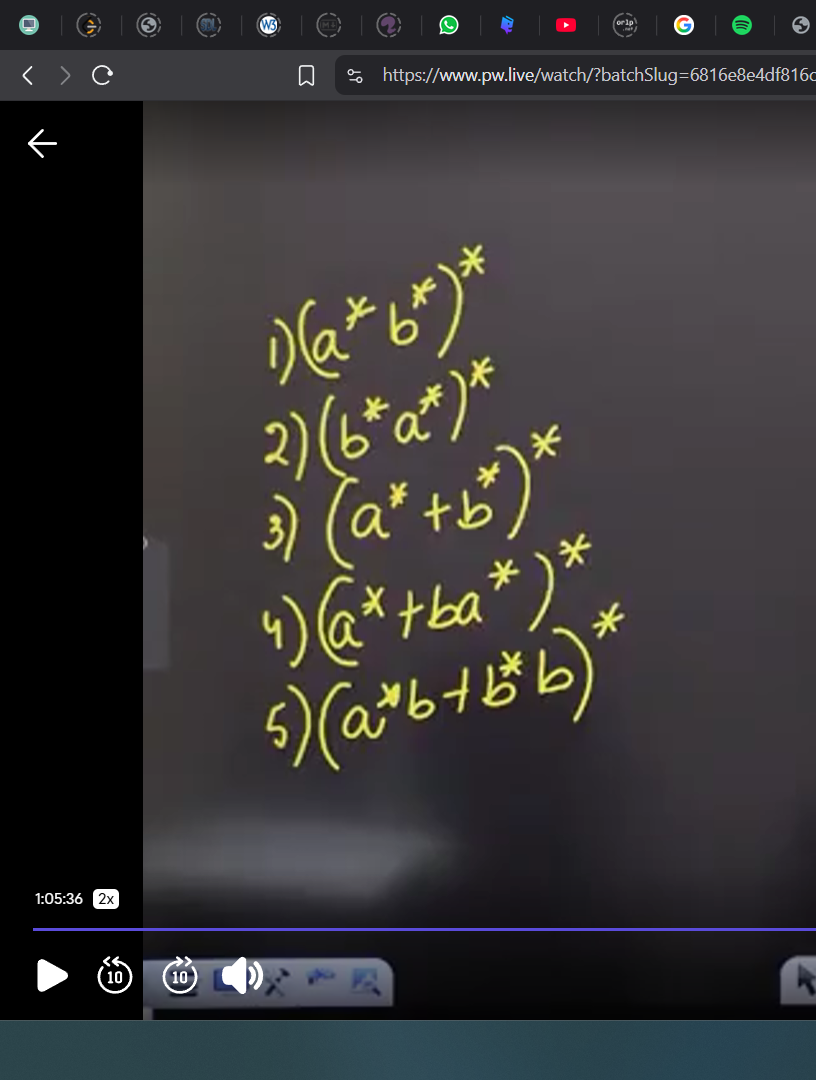 https://www.pw.live/watch/?batchSlug=6816e8e4df816
1) (a* b*)*
2) (b* a*)*
3) (a* + b*)*
4) (a* + ba*)*
5) (a*b + b*b)*
1:05:36 2x
10 10